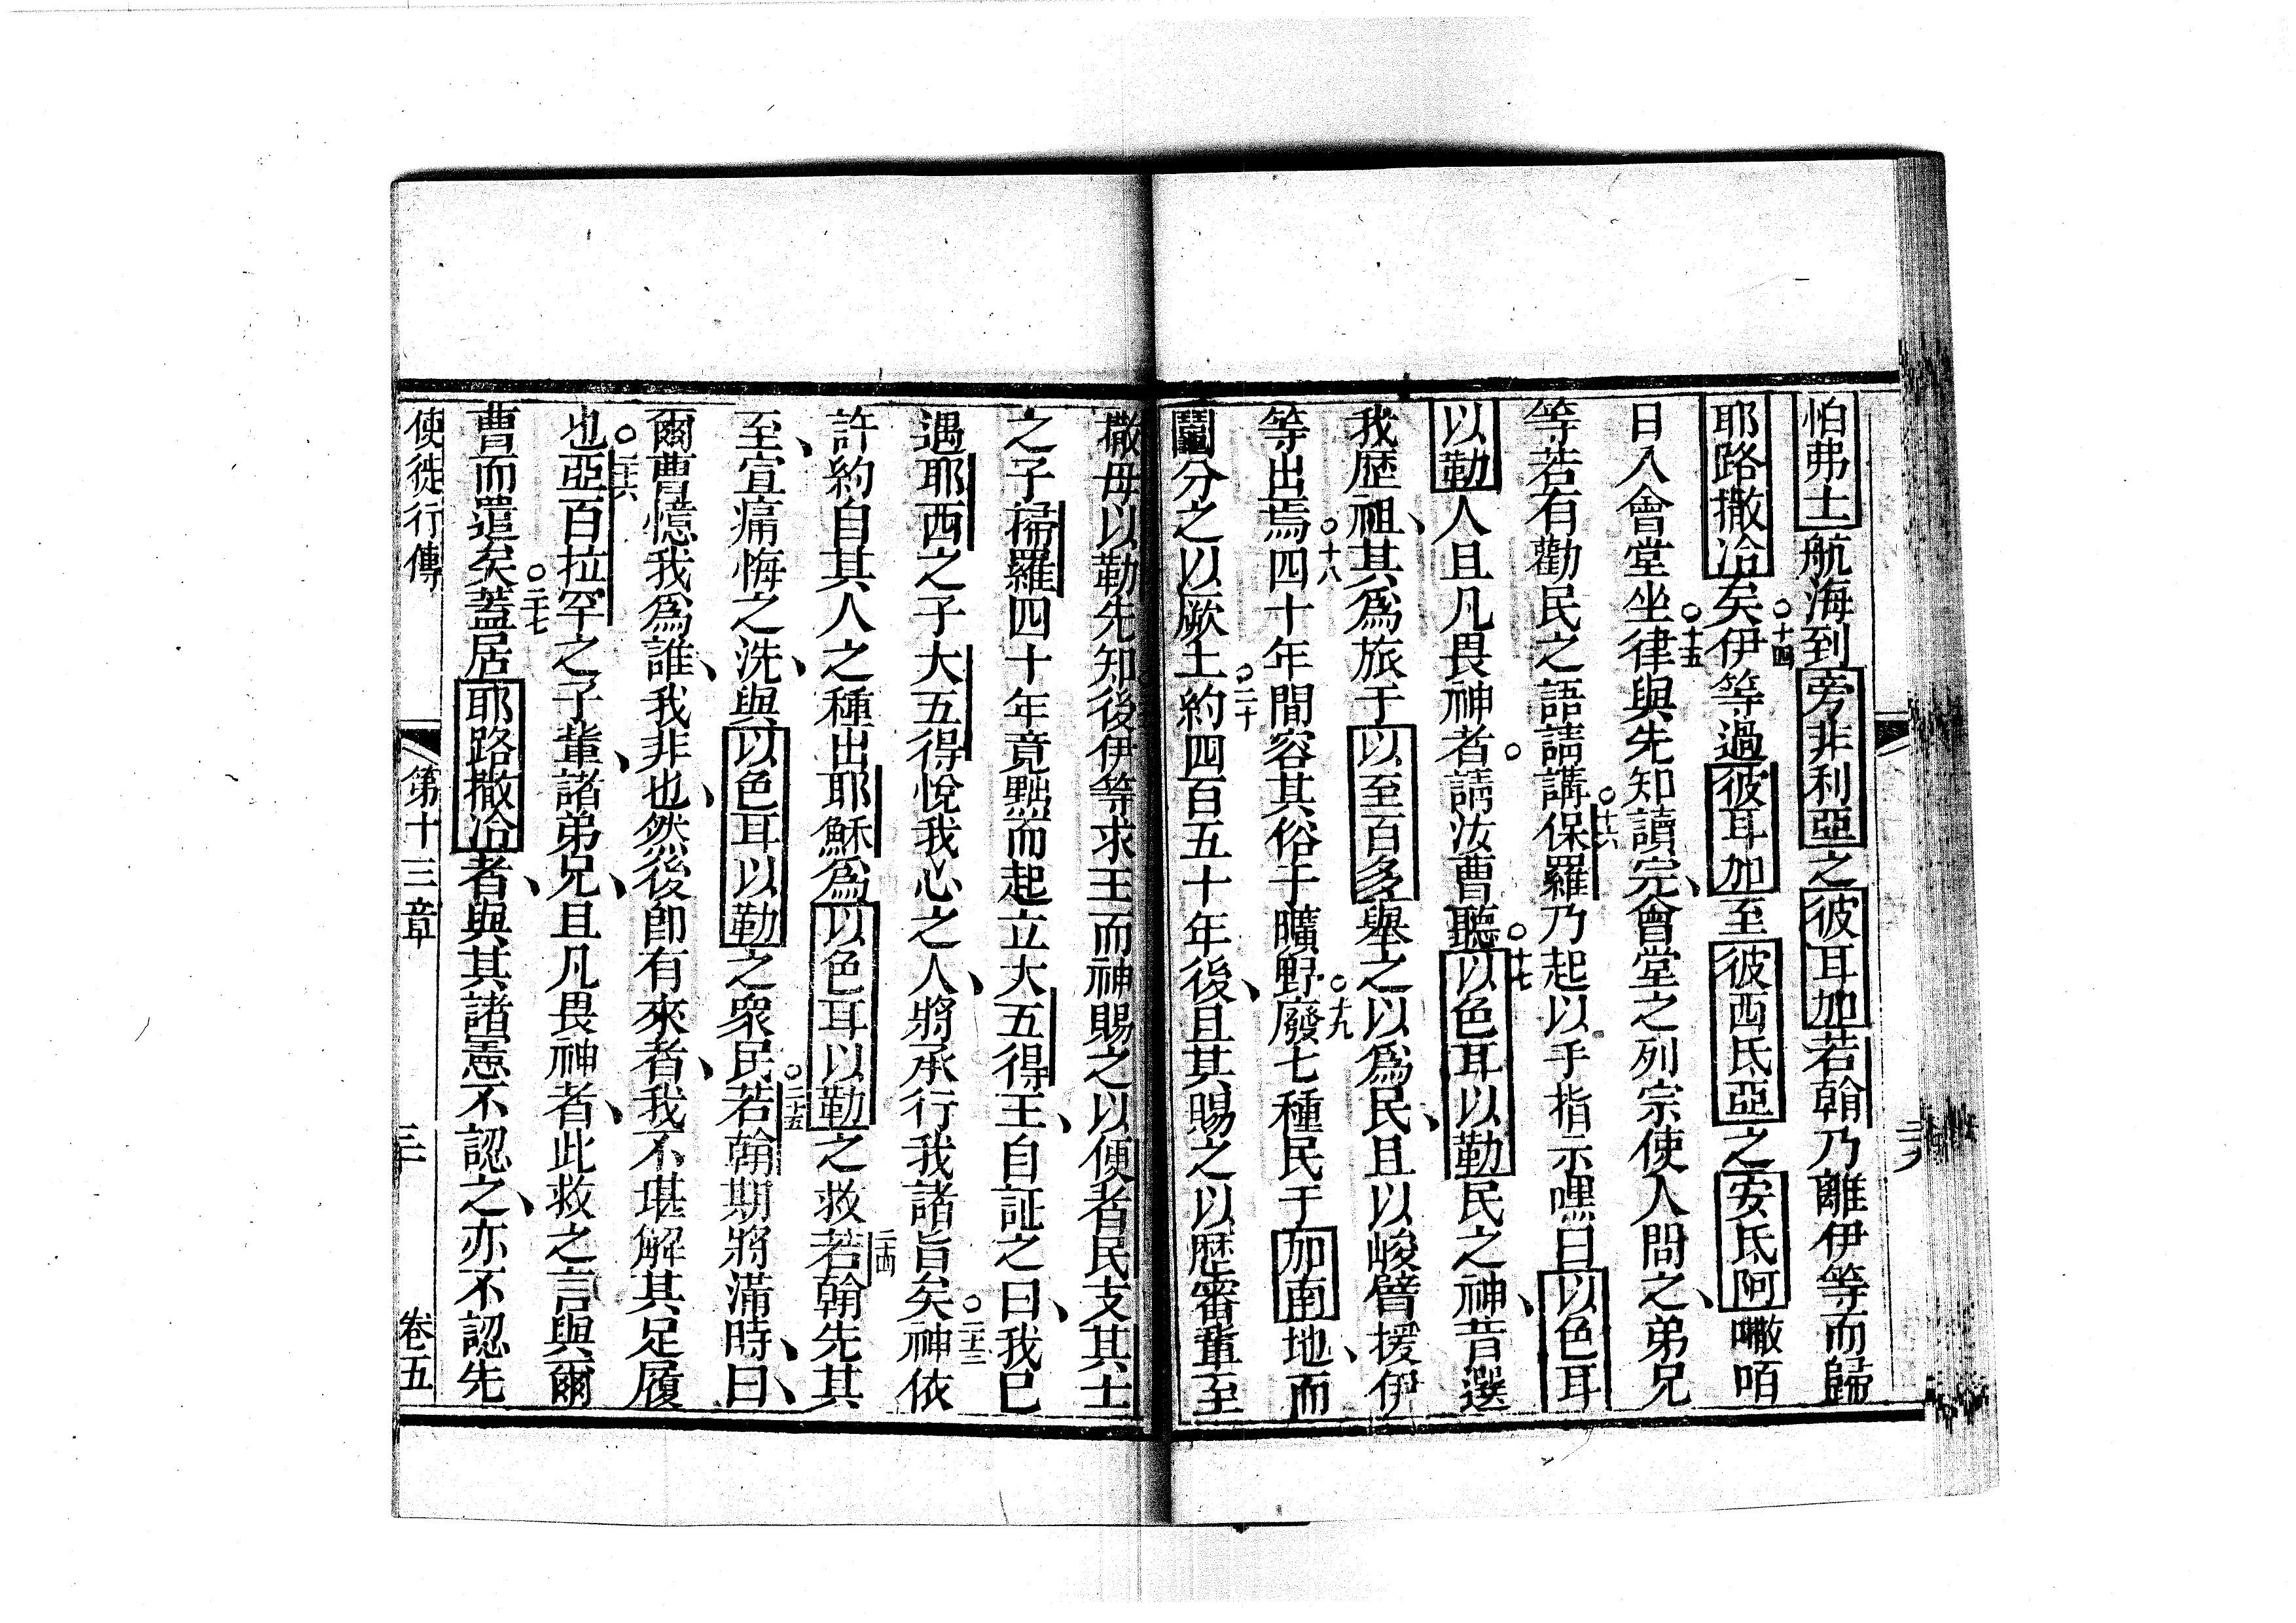 怕弗土航海到旁非利亞之彼耳加若翰乃離伊等而歸
耶路撒冾矣○十四伊等過彼耳加至彼西氐亞之安氐阿𠽁咟
日入會堂坐○十五律與先知讀完、會堂之列宗使人問之、弟兄
等若有勸民之語請講○十六保羅乃起以手指示嘿曰以色耳
以勒人且凡畏神者○請汝曹聽○十七以色耳以勒民之神、昔選
我歷祖、其為旅于以至百多舉之以為民、且以峻臂援伊
等出焉○十八四十年間容其俗于曠野○十九廢七種民于加南地、而
鬮分之以厥土○二十約四百五十年後、且其賜之以歷審輩至
撒母以勒先知後伊等求王而神賜之以便者民支其士
之子掃羅四十年竟黜而起立大五得王、自証之曰、我已
遇耶西之子大五得悅我心之人、將承行我諸旨矣○二十三神依
許約自其人之種出耶穌為以色耳以勒之救二十四若翰先其
至、宣痛悔之洗、與以色耳以勒之衆民○二十五若翰期將滿時、曰、
爾曹憶我為誰、我非也、然後卽有來者、我不堪解其足履
也○二十六亞百拉罕之子輩、諸弟兄、且凡畏神者、此救之言與爾
曹而遣矣○二十七蓋居耶路撒冾者、與其諸憲不認之、亦不認先
使徒行傳 第十三章 卷五